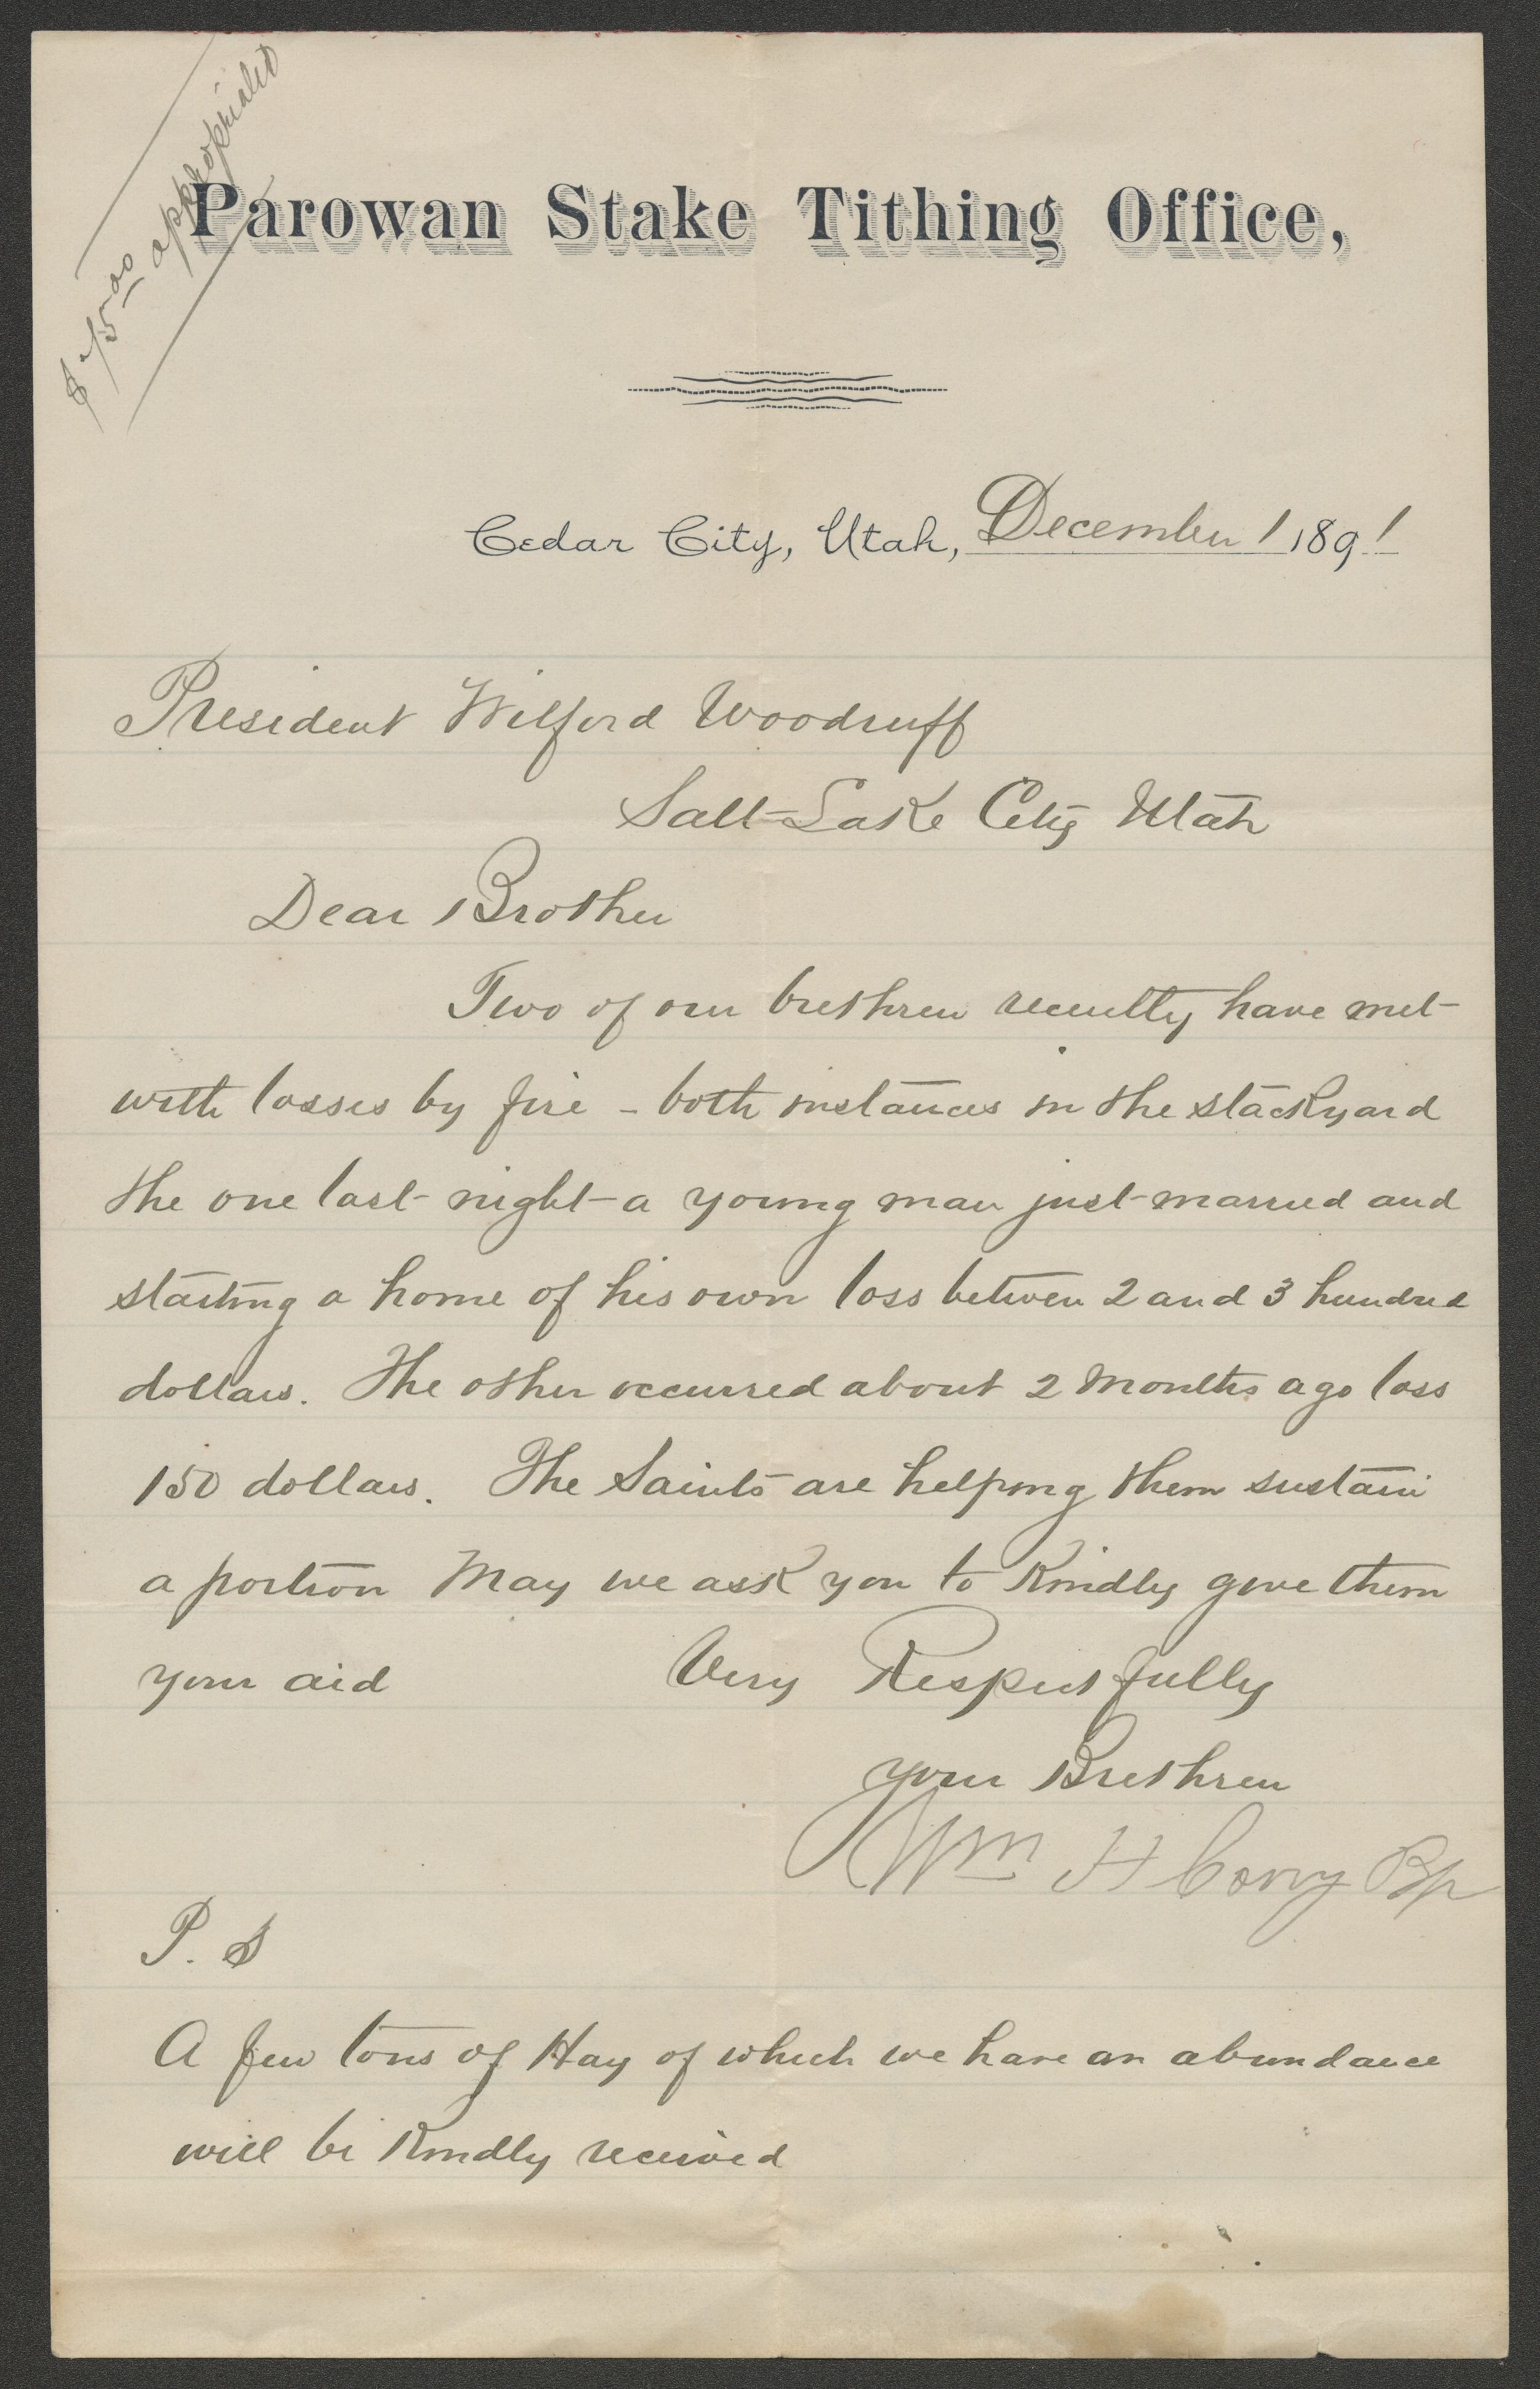 $75.00 appropriated
Parowan Stake Tithing Office,
Cedar City, Utah, December 1 1891
President Wilford Woodruff
Salt Lake City Utah
Dear Brother
Two of our brethren recently have met
with losses by fire - both instances in the stackyard
the one last night a young man just married and
starting a home of his own loss between 2 and 3 hundred
dollars. The other occurred about 2 months ago loss
150 dollars. The Saints are helping them sustain
a portion May we ask you to Kindly give them
your aid Very Respectfully
your Brethren
Wm H Corry Bp
P. S
A few tons of Hay of which we have an abundance
will be Kindly received